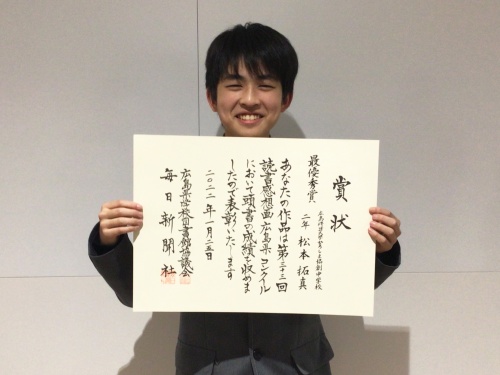 賞状
最優秀賞
二年 松本拓真
あなたの作品は第三十三回
読書感想画広島県コンクール
において頭書の成績を収めま
したので表彰いたします
二〇二二年一月二五日
広島県学校図書館協議会
毎日新聞社